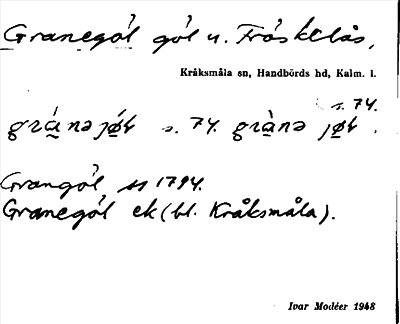 Granegöl göl u. Fröskelås,
Kråksmåla sn, Handbörds hd, Kalm. l.
s. 74.
grànə jø̀l s. 74. grànə jøl.
Grangöl 1794.
Granegöl ek (bl. Kråksmåla).
Ivar Modéer 1948